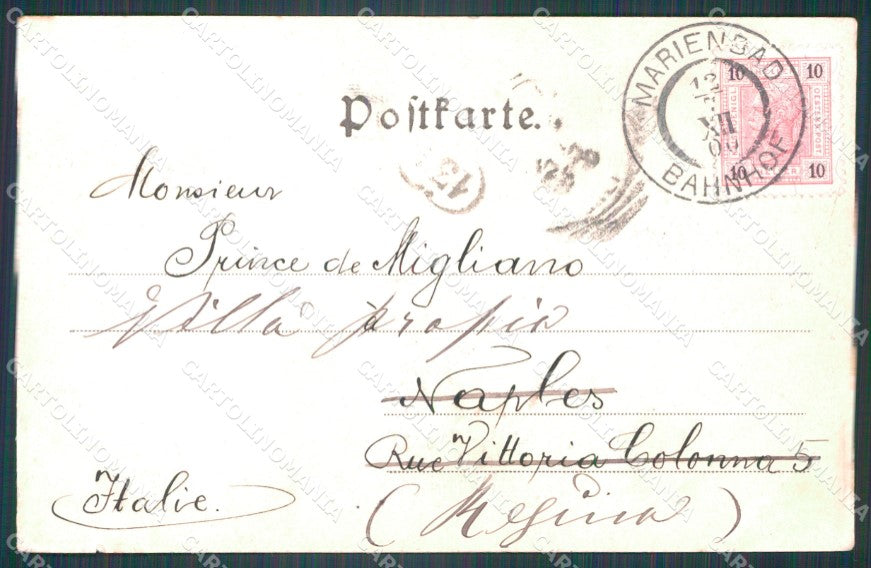 MARIENBAD
12
XII
BAHNHOF
10 10
10 10
Postkarte.
Monsieur
Prince de Migliano
à
Villa propria
Naples
Rue Vittoria Colonna 5
Italie.
(Resina)
CARTOLINOMANIA